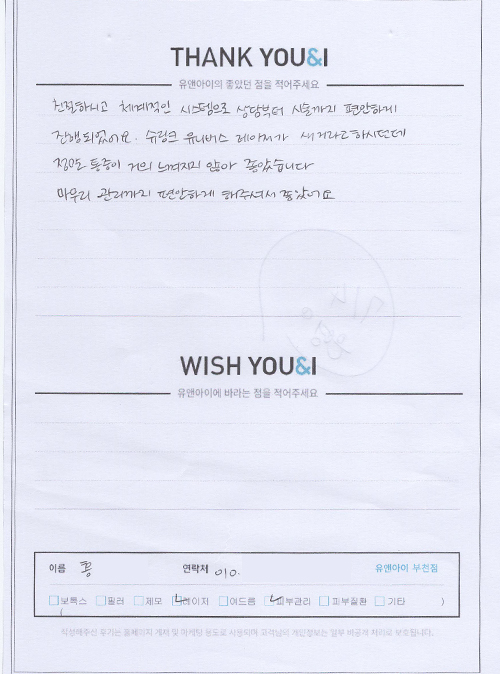 THANK YOU&I
유앤아이의 좋았던 점을 적어주세요
친절하시고 체계적인 시스템으로 상담부터 시술까지 편안하게
진행되었어요. 슈링크 유니버스 레이저가 새거라고하시던데
정말 통증이 거의 느껴지지 않아 좋았습니다
마무리 관리까지 편안하게 해주셔서 좋았어요
WISH YOU&I
유앤아이에 바라는 점을 적어주세요
이름 홍 연락처 010. 유앤아이 부천점
보톡스 필러 제모 레이저 여드름 피부관리 피부질환 기타 )
작성해주신 후기는 홈페이지 게재 및 마케팅 용도로 사용되며 고객님의 개인정보는 일부 비공개 처리로 보호됩니다.